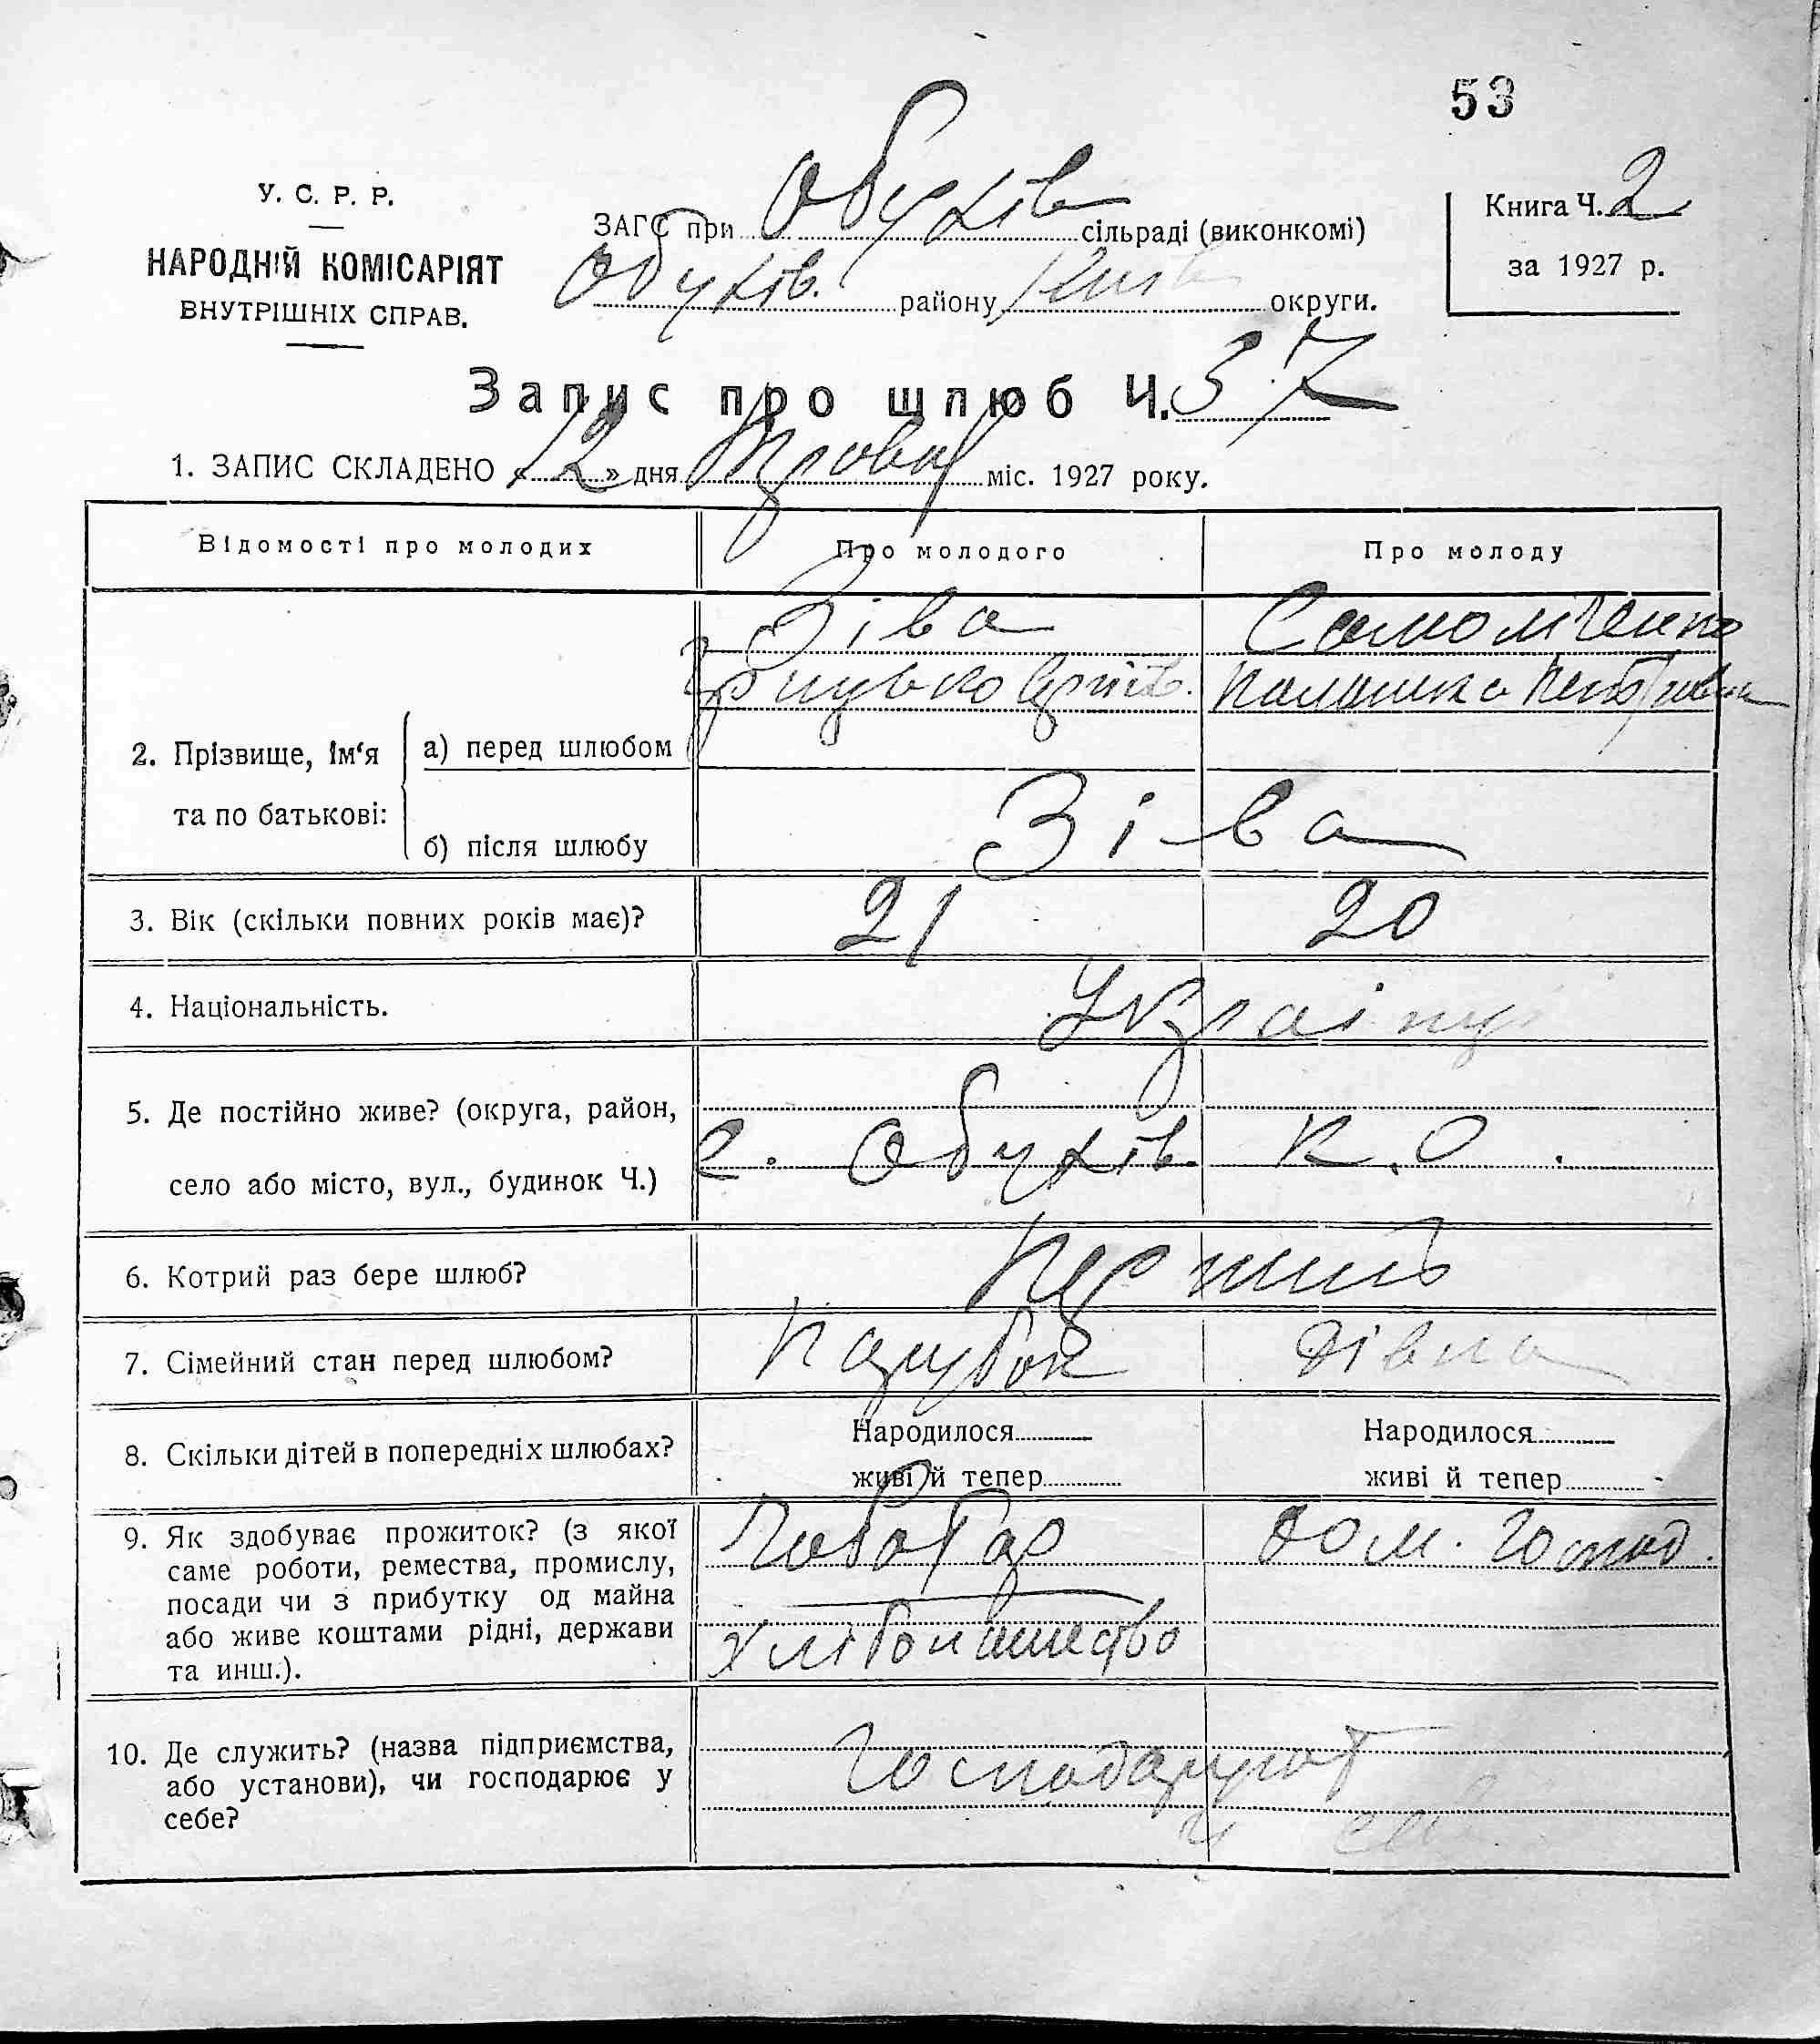 53
У. С. Р. Р.
НАРОДНІЙ КОМІСАРІЯТ
ВНУТРІШНІХ СПРАВ.
ЗАГС при Обухів сільраді (виконкомі)
Обухів. району Київ округи.
Книга Ч. 2
за 1927 р.
Запис про шлюб Ч. 37
1. ЗАПИС СКЛАДЕНО « 12 » дня міс. 1927 року.
Відомості про молодих Про молодого Про молоду
Зіва
Грицько Петровна
2. Прізвище, ім‘я та по батькові:
а) перед шлюбом
б) після шлюбу Зіва
3. Вік (скільки повних років має)? 21 20
4. Національність. Українц
5. Де постійно живе? (округа, район,
село або місто, вул., будинок Ч.) с. Обухів. К. О.
6. Котрий раз бере шлюб? Перший
7. Сімейний стан перед шлюбом? Парубок Дівка
8. Скільки дітей в попередніх шлюбах? Народилося Народилося
живі й тепер живі й тепер
9. Як здобуває прожиток? (з якої Чоботар дом. господ.
саме роботи, ремества, промислу,
посади чи з прибутку од майна
або живе коштами рідні, держави хлібопашество
та инш.).
10. Де служить? (назва підприємства, Господарюют
або установи), чи господарює у у себ
себе?